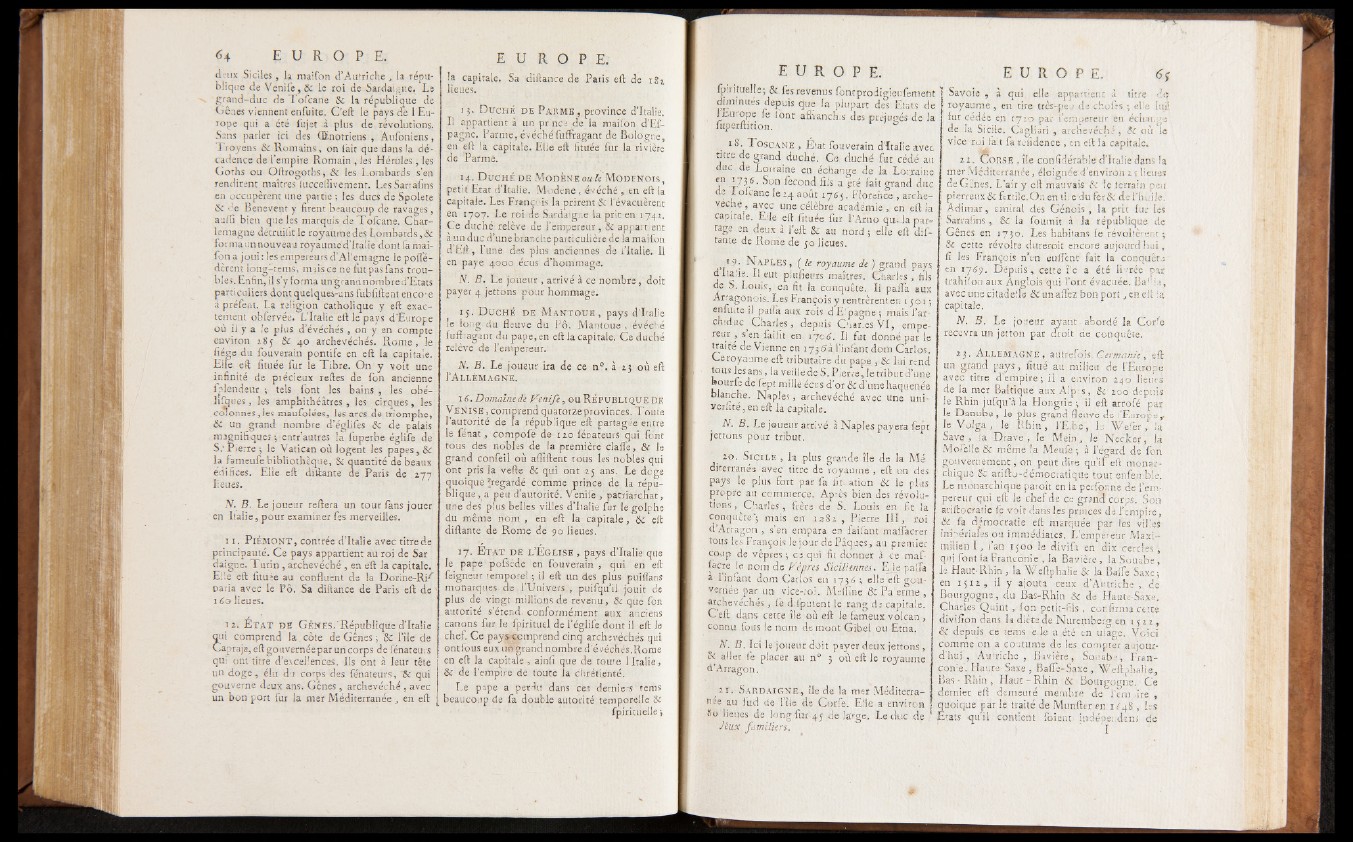 64 EUROPE.
deux Siciles, la maison d'Autriche, la répu-
blique de Venise, & le roi de Sardaigne. Le
grand-duc de Toscane & la république de
Gênes viennent ensuite. C'est le pays de l'Eu-
rope qui a été sujet à plus de révolutions.
Sans parler ici des Œnotriens, Ausoniens,
Troyens & Romains, on sait que dans la dé-
cadence de l'empire Romain, les Hérules, les
Goths ou Ostrogoths, & les Lombards s'en
rendirent maîtres successivement. Les Sarrasins
en occupèrent une partie; les ducs de Spolete
& de Benevent y firent beaucoup de ravages,
aussi bien que les marquis de Toscane. Char-
lemagne détruisit le royaume des Lombards, &
forma un nouveau royaume d'Italie dont sa mai-
son a joui: les empereurs d'Allemagne le possé-
dèrent long-tems, mais ce ne fut pas sans trou-
bles. Enfin, il s'y forma un grand nombre d'Etats
particuliers dont quelques-uns subsistent encore
à présent. La religion catholique y est exac-
tement observée. L'Italie est le pays d'Europe
où il y a le plus d'évêchés, on y en compte
environ 285 & 40 archevêchés. Rome, le
siége du souverain pontife en est la capitale.
Elle est située sur le Tibre. On y voit une
infinité de précieux restes de son ancienne
splendeur; tels sont les bains, les obé-
lisques, les amphithéâtres, les cirques, les
colonnes, les mausolées, les arcs de triomphe,
& un grand nombre d'églises & de palais
magnifiques; entr'autres la superbe église de
S. Pierre; le Vatican où logent les papes, &
la fameuse bibliothèque, & quantité de beaux
édifices. Elle est distante de Paris de 277
lieues.
N. B. Le joueur restera un tour sans jouer
en Italie, pour examiner ses merveilles.
11. PIÉMONT, contrée d'Italie avec titre de
principauté. Ce pays appartient au roi de Sar
daigne. Turin, archevêché, en est la capitale.
Elle est située au confluent de la Dorine-Ri
paria avec le Pô. Sa distance de Paris est de
160 lieues.
12. ÉTAT DE GÊNES. République d'Italie
qui comprend la côte de Gênes; & l'île de
Capraja, est gouvernée par un corps de sénateurs
qui ont titre d'excellences. Ils ont à leur tête
un doge, élu du corps des sénateurs, & qui
gouverne deux ans. Gênes, archevêché, avec
un bon port sur la mer Méditerranée, en est
EUROPE.
la capitale. Sa distance de Paris est de 182
lieues.
13. DUCHÉ DE PARME, province d'Italie.
Il appartient à un prince de la maison d'Es-
pagne. Parme, évêché suffragant de Bologne,
en est la capitale. Elle est située sur la rivière
de Parme.
14. DUCHÉ DE MODÈNE ou le MODENOIS,
petit Etat d'Italie. Modène, évêché, en est la
capitale. Les François la prirent & l'évacuèrent
en 1707. Le roi de Sardaigne la prit en 1742.
Ce duché relève de l'empereur, & appartient
à un duc d'une branche particulière de la maison
d'Est, l'une des plus anciennes de l'Italie. Il
en paye 4000 écus d'hommage.
N. B. Le joueur, arrivé à ce nombre, doit
payer 4 jettons pour hommage.
15. DUCHÉ DE MANTOUE, pays d'Italie
le long du fleuve du Pô. Mantoue, évêché
suffragant du pape, en est la capitale. Ce duché
relève de l'empereur.
N. B. Le joueur ira de ce n°. à 23 où est
l'ALLEMAGNE.
16. Domaine de Venise, ou RÉPUBLIQUE DE
VENISE, comprend quatorze provinces. Toute
l'autorité de la république est partagée entre
le sénat, composé de 120 sénateurs qui sont
tous des nobles de la première classe, & le
grand conseil où assistent tous les nobles qui
ont pris la veste & qui ont 25 ans. Le doge
quoique regardé comme prince de la répu-
blique, a peu d'autorité. Venise, patriarchat,
une des plus belles villes d'Italie sur le golphe
du même nom, en est la capitale, & est
distante de Rome de 90 lieues.
17. ÉTAT DE L'ÉGLISE, pays d'Italie que
le pape possède en souverain, qui en est
seigneur temporel; il est un des plus puissans
monarques de l'Univers, puisqu'il jouit de
plus de vingt millions de revenu, & que son
autorité s'étend conformément aux anciens
canons sur le spirituel de l'église dont il est le
chef. Ce pays comprend cinq archevêchés qui
ont sous eux un grand nombre d'évêchés. Rome
en est la capitale, ainsi que de toute l'Italie,
& de l'empire de toute la chrétienté.
Le pape a perdu dans ces derniers tems
beaucoup de sa double autorité temporelle &
spirituelle;
EUROPE.
spirituelle; & ses revenus sont prodigieusement
diminués depuis que la plupart des Etats de
l'Europe se sont affranchis des préjugés de la
superstition.
18. TOSCANE, État souverain d'Italie avec
titre de grand duché. Ce duché fut cédé au
duc de Lorraine en échange de la Lorraine
en 1736. Son second fils a été fait grand duc
de Toscane le 24 août 1765. Florence, arche-
vêché, avec une célèbre académie, en est la
capitale. Elle est située sur l'Arno qui la par-
tage en deux à l'est & au nord; elle est dis-
tante de Rome de 50 lieues.
19. NAPLES, (le royaume de) grand pays
d'Italie. Il eut plusieurs maîtres. Charles, fils
de S. Louis, en fit la conquête. Il passa aux
Arragonois. Les François y rentrèrent en 1501;
ensuite il passa aux rois d'Espagne; mais l'ar-
chiduc Charles, depuis Charles VI, empe-
reur, s'en saisit en 1706. Il fut donné par le
traité de Vienne en 1736 à l'infant dom Carlos.
Ce royaume est tributaire du pape, & lui rend
tous les ans, la veille de S. Pierre, le tribut d'une
bourse de sept mille écus d'or & d'une haquenée
blanche. Naples, archevêché avec une uni-
versité, en est la capitale.
N. B. Le joueur arrivé à Naples payera sept
jettons pour tribut.
20. SICILE, la plus grande île de la Mé-
diterranée avec titre de royaume, est un des
pays le plus fort par sa situation & le plus
propre au commerce. Après bien des révolu-
tions, Charles, frère de S. Louis en fit la
conquête; mais en 1282, Pierre III, roi
d'Arragon, s'en empara en faisant massacrer
tous les François le jour de Pâques, au premier
coup de vêpres; ce qui fit donner à ce mas-
sacre le nom de Vêpres Siciliennes. Elle passa
à l'infant dom Carlos en 1736; elle est gou-
vernée par un vice-roi. Messine & Palerme,
archevêchés, se disputent le rang de capitale.
C'est dans cette île où est le fameux volcan,
connu sous le nom de mont Gibel ou Etna.
N. B. Ici le joueur doit payer deux jettons,
& aller se placer au n° 3 où est le royaume
d'Arragon.
21. SARDAIGNE, île de la mer Méditerra-
née au sud de l'île de Corse. Elle a environ
80 lieues de long sur 45 de large. Le duc de
Jeux familiers.
EUROPE. 65
Savoie, à qui elle appartient à titre de
royaume, en tire très-peu de choses; elle lui
fut cédée en 1720 par l'empereur en échange
de la Sicile. Cagliari, archevêché, & où le
vice roi fait sa résidence, en est la capitale.
22. CORSE, île considérable d'Italie dans la
mer Méditerranée, éloignée d'environ 25 lieues
de Gênes. L'air y est mauvais & le terrain peu
pierreux & fertile. On en tire du fer & de l'huile.
Adimar, amiral des Génois, la prit sur les
Sarrasins, & la soumit à la république de
Gênes en 1730. Les habitans se révoltèrent;
& cette révolte dureroit encore aujourd'hui,
si les François n'en eussent fait la conquête
en 1769. Depuis, cette île a été livrée par
trahison aux Anglois qui l'ont évacuée. Bastia,
avec une citadelle & un assez bon port, en est la
capitale.
N. B. Le joueur ayant abordé la Corse
recevra un jetton par droit de conquête.
23. ALLEMAGNE, autrefois Germanie, est
un grand pays, situé au milieu de l'Europe
avec titre d'empire; il a environ 240 lieues
de la mer Baltique aux Alpes, & 200 depuis
le Rhin jusqu'à la Hongrie; il est arrosé par
le Danube, le plus grand fleuve de l'Europe,
le Volga, le Rhin, l'Elbe, le Weser, la
Save, la Drave, le Mein, le Necker, la
Moselle & même la Meuse; à l'égard de son
gouvernement, on peut dire qu'il est monar-
chique & aristo-démocratique tout ensemble.
Le monarchique paroît en la personne de l'em-
pereur qui est le chef de ce grand corps. Son
aristocratie se voit dans les princes de l'empire,
& sa démocratie est marquée par les villes
impériales ou immédiates. L'empereur Maxi-
milien I, l'an 1500 le divisa en dix cercles,
qui sont la Franconie, la Bavière, la Souabe,
le Haut-Rhin, la Westphalie & la Basse Saxe;
en 1512, il y ajouta ceux d'Autriche, de
Bourgogne, du Bas-Rhin & de Haute-Saxe.
Charles Quint, son petit-fils, confirma cette
division dans la diète de Nuremberg en 1522,
& depuis ce tems elle a été en usage. Voici
comme on a coutume de les compter aujour-
d'hui, Autriche, Bavière, Souabe, Fran-
conie, Haute-Saxe, Basse-Saxe, Westphalie,
Bas-Rhin, Haut-Rhin & Bourgogne. Ce
dernier est demeuré membre de l'empire,
quoique par le traité de Munster en 1648, les
Etats qu'il contient soient indépendans de
I